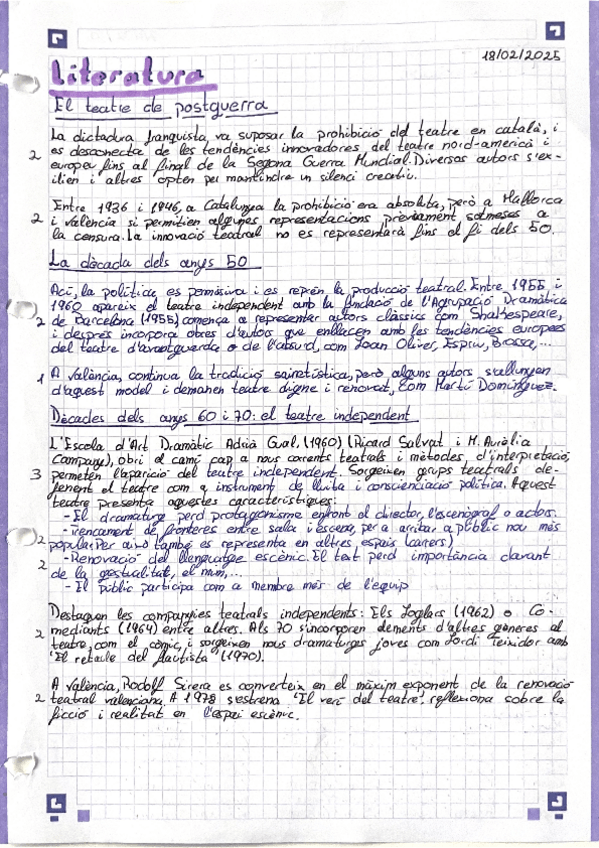 18/02/2025
Literatura
El teatre de postguerra
La dictadura franquista, va suposar la prohibició del teatre en català, i
2 es desconecta de les tendències innovadores del teatre nord-americà i
europeu fins al final de la Segona Guerra Mundial. Diversos autors s'ex-
ilien i altres opten per mantindre un silenci creatiu.
Entre 1936 i 1946, a Catalunya la prohibició era absoluta, però a Mallorca
2 i València si permitien algunes representacions prèviament sotmeses a
la censura. La innovació teatral no es representarà fins al fi dels 50.
La dècada dels anys 50
Ací, la política es permisiva i es reprèn la producció teatral. Entre 1955 i
1960 apareix el teatre independent amb la fundació de l'Agrupació Dramàtica
2 de Barcelona (1955) comença a representar autors clàssics com Shakhespeare,
i després incorpora obres d'autors que enllacen amb les tendències europees
del teatre d'avantguarda o de l'absurd, com Joan Oliver, Espriu, Brossa,...
1 A València, continua la tradició sainetística, però alguns autors s'allunyen
d'aquest model i demanen teatre digne i renovat, com Martí Domínguez.
Dècades dels anys 60 i 70: el teatre independent
L'Escola d'Art Dramàtic Adrià Gual (1960) (Ricard Salvat i M. Aurèlia
Campany), obri el camí cap a nous corrents teatrals i mètodes, d'interpretació,
3 permeten l'aparició del teatre independent. Sorgeixen grups teactrals de-
fenent el teatre com a instrument de lluita i conscienciació política. Aquest
teatre presenta aquestes característiques:
- El dramaturg perd protagonisme enfront el director, l'escenògraf o actors.
- irencament de fronteres entre sala i escena, per a arribar a públic nou més
2 popular. Per això també es representa en altres espais (carrers)
2 - Renovació del llenguatge escènic. El text perd importància davant
de la gestualitat, el mim,...
- El públic participa com a membre més de l'equip
Destaquen les companyies teatrals independents: Els Joglars (1962) o Co-
2 mediants (1964) entre altres. Als 70 s'incorporen elements d'altres gèneres al
teatre, com el còmic, i sorgeixen nous dramaturgs joves com Jordi Teixidor amb
"El retaule del flautista" (1970).
A València, Rodolf Sirera es converteix en el màxim exponent de la renovació
2 teatral valenciana. A 1978 s'estrena "El verí del teatre", reflexiona sobre la
ficció i realitat en l'espai escènic.